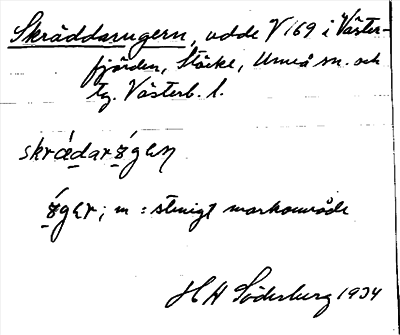 Skräddarugern, udde V 169 i Väster-
fjärden, Stöcke, Umeå sn. och
tg. Västerb. l.
skrǽdar gen
ger, m : stenigt markområde
H H Söderberg 1934